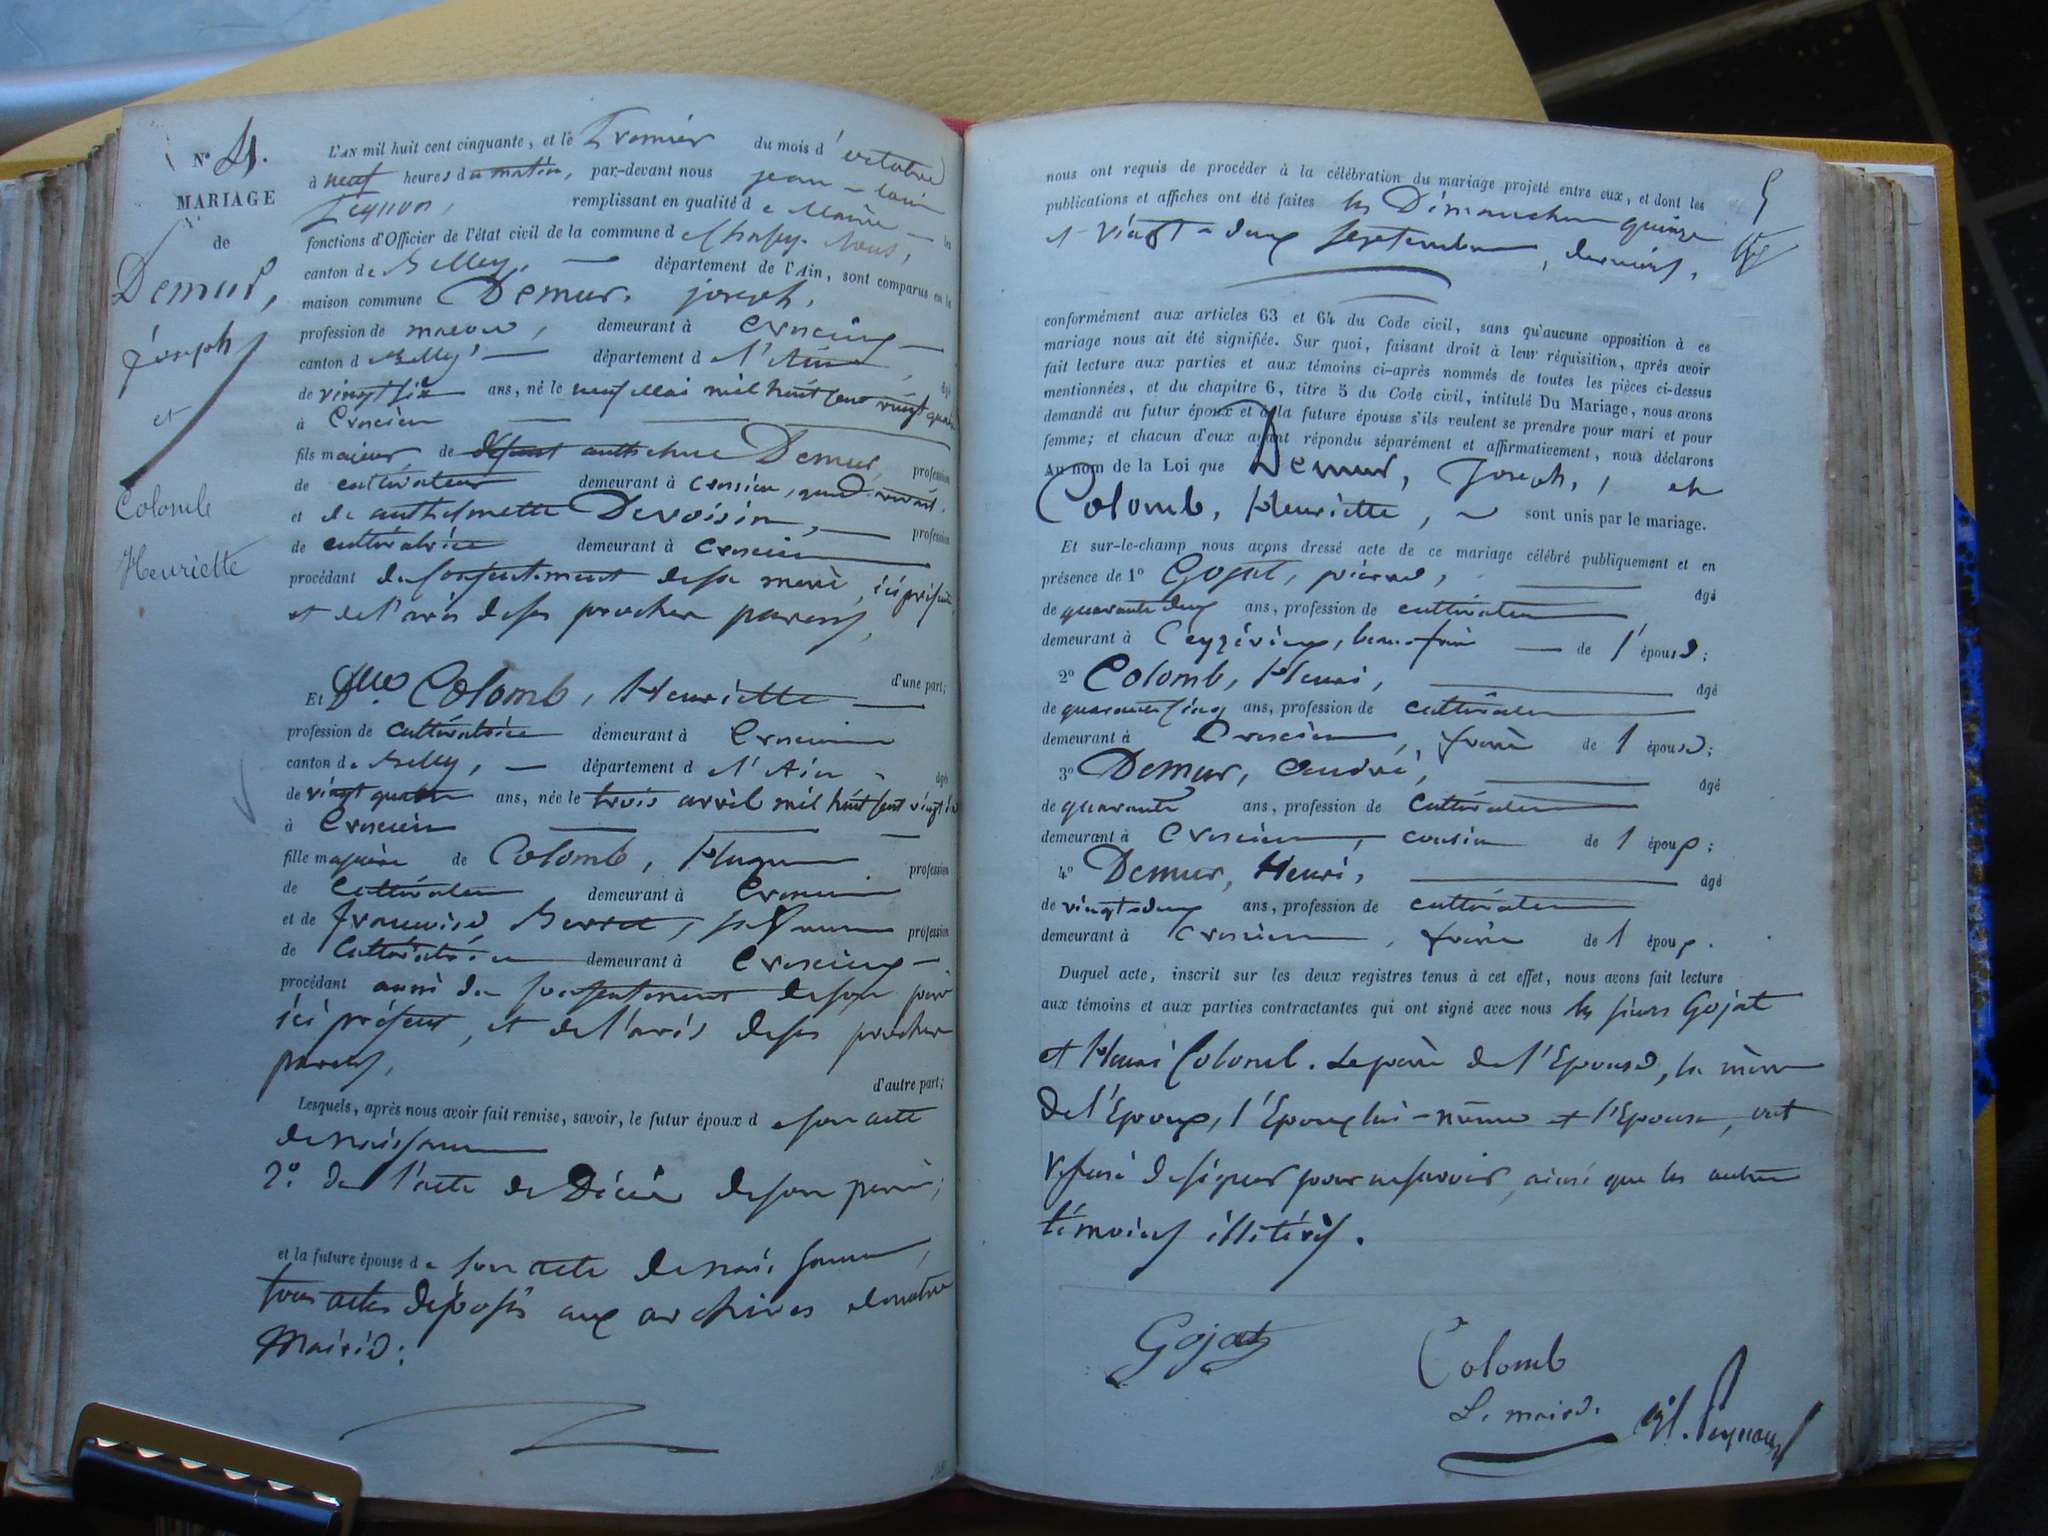 N° 4.
MARIAGE
de
Demur,
joseph
et
Colomb
Henriette
L'AN mil huit cent cinquante, et le premier du mois d'octobre
à neuf heures du matin, par-devant nous jean-louis
Peynon, remplissant en qualité de Maire les
fonctions d'Officier de l'état civil de la commune d
canton de Belley, département de l'Ain, sont comparus en la
maison commune Demur, joseph,
profession de maçon, demeurant à
canton de Belley département de l'Ain, âgé
de vingt six ans, né le neuf Mai mil huit cent vingt quatre
à
fils majeur, de défunt anthelme Demur, profession
de cultivateur demeurant à quand vivait,
et de anthelmette Devoisin, profession
de cultivatrice demeurant à
procédant du consentement de sa mère, ici présente,
et de l'avis de ses proches parens,
d'une part;
Et Dlle Colomb, Henriette
profession de cultivatrice demeurant à
canton de Belley, département de l'Ain, âgée
de vingt quatre ans, née le trois avril mil huit cent vingt
à
fille majeure de Colomb, profession
de cultivateur demeurant à
et de françoise sa femme profession
de cultivatrice demeurant à
procédant aussi du consentement de son père
ici présent, et de l'avis de ses proches
parens,
d'autre part;
Lesquels, après nous avoir fait remise, savoir, le futur époux de son acte
de naissance
2° de l'acte de Décès de son père;
et la future épouse de son acte de naissance,
tous actes déposés aux archives de notre
Mairie.
nous ont requis de procéder à la célébration du mariage projeté entre eux, et dont les
publications et affiches ont été faites les Dimanches quinze
et vingt-deux septembre, derniers,
conformément aux articles 63 et 64 du Code civil, sans qu'aucune opposition à ce
mariage nous ait été signifiée. Sur quoi, faisant droit à leur réquisition, après avoir
fait lecture aux parties et aux témoins ci-après nommés de toutes les pièces ci-dessus
mentionnées, et du chapitre 6, titre 5 du Code civil, intitulé Du Mariage, nous avons
demandé au futur époux et à la future épouse s'ils veulent se prendre pour mari et pour
femme; et chacun d'eux ayant répondu séparément et affirmativement, nous déclarons
Au nom de la Loi que Demur, Joseph, et
Colomb, Henriette, sont unis par le mariage.
Et sur-le-champ nous avons dressé acte de ce mariage célébré publiquement et en
présence de 1° Gojat, pierre, âgé
de quarante deux ans, profession de cultivateur
demeurant à Ceyzérieux, beau-frère de l'épouse;
2° Colomb, Henri, âgé
de quarante cinq ans, profession de cultivateur
demeurant à frère de l'épouse;
3° Demur, andré, âgé
de quarante ans, profession de cultivateur
demeurant à cousin de l'époux;
4° Demur, Henri, âgé
de vingt deux ans, profession de cultivateur
demeurant à frère de l'époux.
Duquel acte, inscrit sur les deux registres tenus à cet effet, nous avons fait lecture
aux témoins et aux parties contractantes qui ont signé avec nous les sieurs Gojat
et Henri Colomb. Le père de l'Epouse, la mère
de l'Epoux, l'Epoux lui-même et l'Epouse, ont
refusé de signer pour ne savoir, ainsi que les autres
témoins illitérés.
Gojat
Colomb
Le maire.